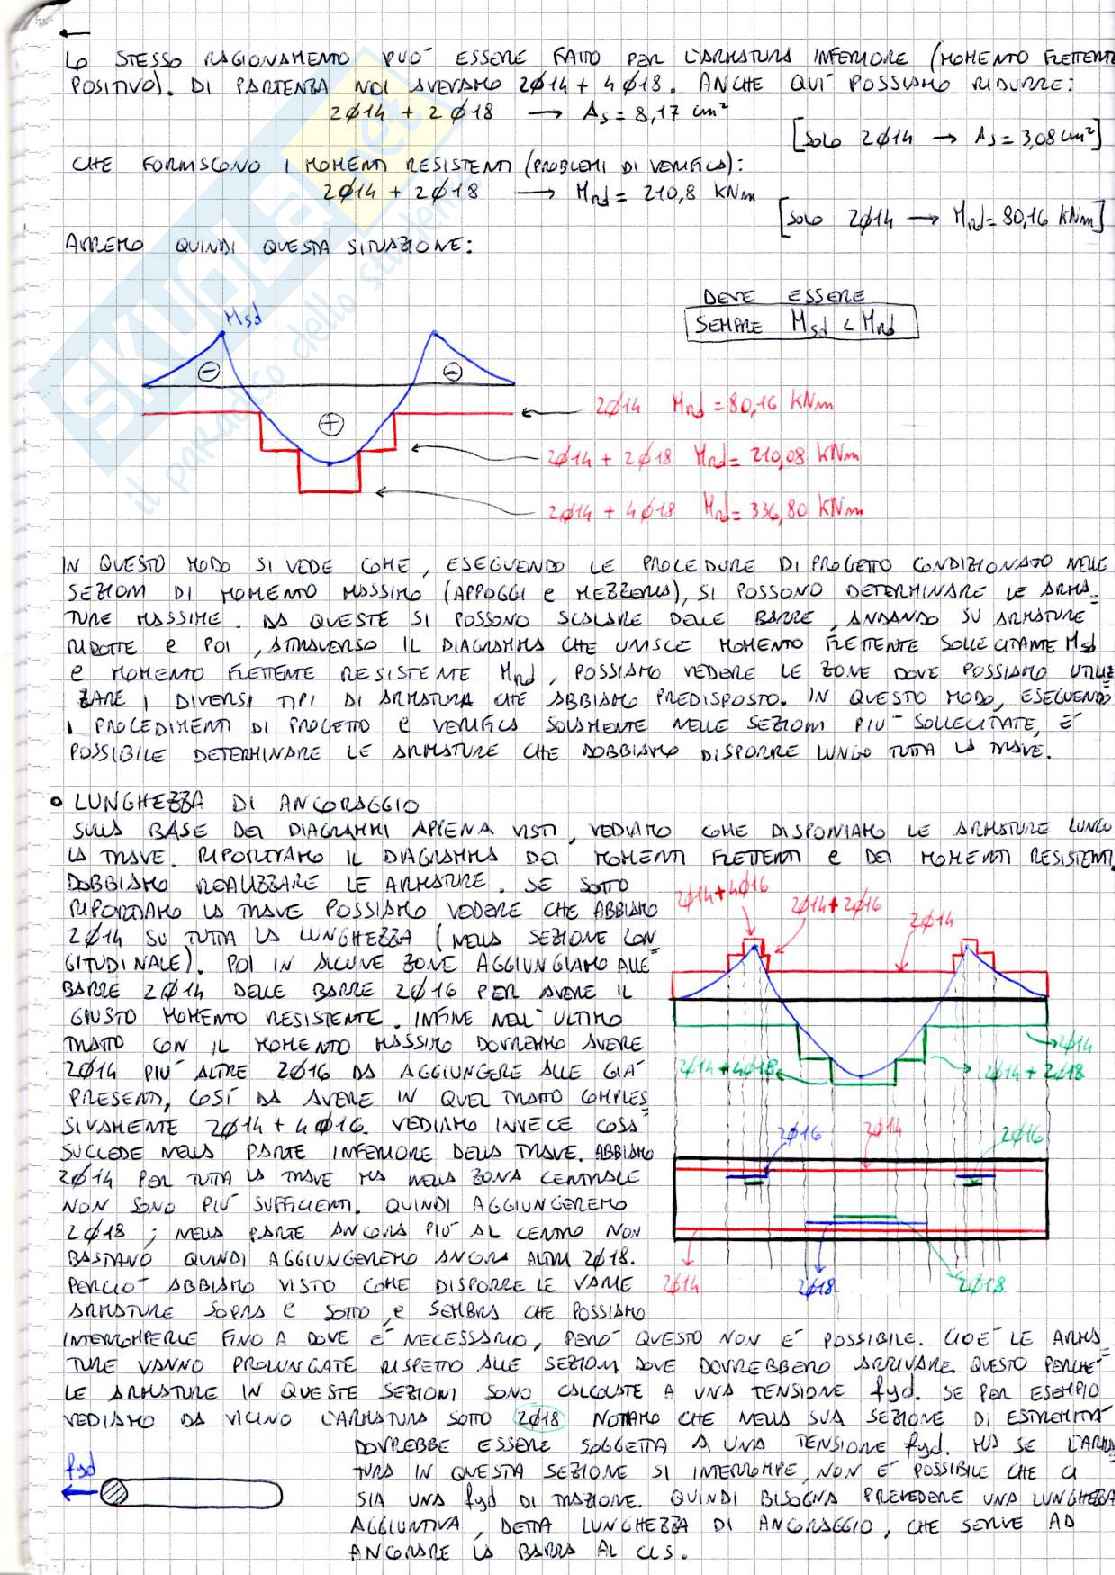 LO STESSO RAGIONAMENTO PUO' ESSERE FATTO PER L'ARMATURA INFERIORE (MOMENTO FLETTENTE
POSITIVO). DI PARTENZA NOI AVEVAMO 2ø14 + 4ø18. ANCHE QUI POSSIAMO RIDURRE:
2ø14 + 2ø18 → As = 8,17 cm²
[SOLO 2ø14 → As = 3,08 cm²]
CHE FORNISCONO I MOMENTI RESISTENTI (PROBLEMI DI VERIFICA):
2ø14 + 2ø18 → Mrd = 210,8 kNm
[SOLO 2ø14 → Mrd = 80,16 kNm]
AVREMO QUINDI QUESTA SITUAZIONE:
DEVE ESSERE
SEMPRE Msd < Mrd
Msd
2ø14 Mrd = 80,16 kNm
2ø14 + 2ø18 Mrd = 210,08 kNm
2ø14 + 4ø18 Mrd = 336,80 kNm
IN QUESTO MODO SI VEDE COME, ESEGUENDO LE PROCEDURE DI PROGETTO CONDIZIONATO NELLE
SEZIONI DI MOMENTO MASSIMO (APPOGGI e MEZZERIA), SI POSSONO DETERMINARE LE ARMA=
TURE MASSIME. DA QUESTE SI POSSONO SCALARE DELLE BARRE, ANDANDO SU ARMATURE
RIDOTTE e POI, ATTRAVERSO IL DIAGRAMMA CHE UNISCE MOMENTO FLETTENTE SOLLECITANTE Msd
e MOMENTO FLETTENTE RESISTENTE Mrd, POSSIAMO VEDERE LE ZONE DOVE POSSIAMO UTILIZ
ZARE I DIVERSI TIPI DI ARMATURA CHE ABBIAMO PREDISPOSTO. IN QUESTO MODO, ESEGUENDO
I PROCEDIMENTI DI PROGETTO E VERIFICA SOLAMENTE NELLE SEZIONI PIU' SOLLECITATE, E'
POSSIBILE DETERMINARE LE ARMATURE CHE DOBBIAMO DISPORRE LUNGO TUTTA LA TRAVE.
• LUNGHEZZA DI ANCORAGGIO
SULLA BASE DEI DIAGRAMMI APPENA VISTI, VEDIAMO COME DISPONIAMO LE ARMATURE LUNGO
LA TRAVE. RIPORTIAMO IL DIAGRAMMA DEI MOMENTI FLETTENTI e DEI MOMENTI RESISTENTI.
DOBBIAMO REALIZZARE LE ARMATURE. SE SOTTO
RIPORTIAMO LA TRAVE POSSIAMO VEDERE CHE ABBIAMO
2ø14 SU TUTTA LA LUNGHEZZA (NELLA SEZIONE LON
GITUDINALE). POI IN ALCUNE ZONE AGGIUNGIAMO ALLE
BARRE 2ø14 DELLE BARRE 2ø16 PER AVERE IL
GIUSTO MOMENTO RESISTENTE. INFINE NELL'ULTIMO
TRATTO CON IL MOMENTO MASSIMO DOVREMO AVERE
2ø14 PIU' ALTRE 2ø16 DA AGGIUNGERE ALLE GIA'
PRESENTI, COSI' DA AVERE IN QUEL TRATTO COMPLES
SIVAMENTE 2ø14 + 4ø16. VEDIAMO INVECE COSA
SUCCEDE NELLA PARTE INFERIORE DELLA TRAVE. ABBIAMO
2ø14 PER TUTTA LA TRAVE MA NELLA ZONA CENTRALE
NON SONO PIU' SUFFICIENTI. QUINDI AGGIUNGEREMO
2ø18; NELLA PARTE ANCORA PIU' AL CENTRO NON
BASTANO QUINDI AGGIUNGEREMO ANCORA ALTRI 2ø18.
PERCIO' ABBIAMO VISTO COME DISPORRE LE VARIE
ARMATURE SOPRA E SOTTO, e SEMBRA CHE POSSIAMO
2ø14+4ø16
2ø14+2ø16
2ø14
2ø14
2ø14+4ø18
2ø14+2ø18
2ø16
2ø14
2ø16
2ø14
2ø18
2ø18
INTERROMPERLE FINO A DOVE E' NECESSARIO, PERO' QUESTO NON E' POSSIBILE. CIOE' LE ARMA=
TURE VANNO PROLUNGATE RISPETTO ALLE SEZIONI DOVE DOVREBBERO ARRIVARE. QUESTO PERCHE'
LE ARMATURE IN QUESTE SEZIONI SONO CALCOLATE A UNA TENSIONE fyd. SE PER ESEMPIO
VEDIAMO DA VICINO L'ARMATURA SOTTO 2ø18 NOTIAMO CHE NELLA SUA SEZIONE DI ESTREMITA'
DOVREBBE ESSERE SOGGETTA A UNA TENSIONE fyd. MA SE L'ARMA
TURA IN QUESTA SEZIONE SI INTERROMPE, NON E' POSSIBILE CHE CI
SIA UNA fyd DI TRAZIONE. QUINDI BISOGNA PREVEDERE UNA LUNGHEZZA
AGGIUNTIVA, DETTA LUNGHEZZA DI ANCORAGGIO, CHE SERVE AD
ANCORARE LA BARRA AL CLS.
fyd
SKUOLA.net
il paradiso dello studente